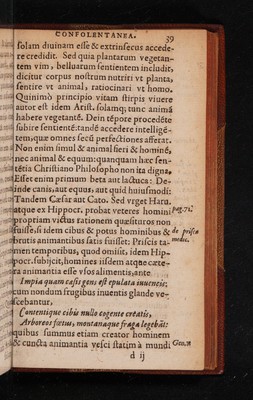 CONFOLENTANEA. 39
solam diuinam esse & extrinsecus accede-
re credidit. Sed quia plantarum vegetan-
tem vim, belluarum sentientem includit,
dicitur corpus nostrum nutriri vt planta,
sentire vt animal, ratiocinari vt homo.
Quinimò principio vitam stirpis viuere
autor est idem Arist. solamq; tunc animā
habere vegetantē. Dein tēpore procedēte
subire sentientē: tandē accedere intelligē-
tem, quæ omnes secū perfectiones afferat.
Non enim simul & animal fieri & hominē,
nec animal & equum: quanquam hæc sen-
tētia Christiano Philosopho non ita digna.
Esset enim primum beta aut lactuca: De-
inde canis, aut equus, aut quid huiusmodi:
Tandem Cæsar aut Cato. Sed vrget Haru.
atque ex Hippocr. probat veteres homini
propriam victus rationem quæsituros non
fuisse, si idem cibus & potus hominibus &
brutis animantibus satis fuisset: Priscis ta-
men temporibus, quod omisit, idem Hip-
pocr. subijcit, homines iisdem atque cæte-
ra animantia esse vsos alimentis, ante
Impia quam cæsis gens est epulata iuuencis;
cum nondum frugibus inuentis glande ve-
scebantur,
Contentique cibis nullo cogente creatis,
Arboreos fœtus, montanaque fraga legebāt:
quibus summus etiam creator hominem
& cuncta animantia vesci statim à mundi
d ij
pag. 71.
de prisca
medic.
Gen. 1